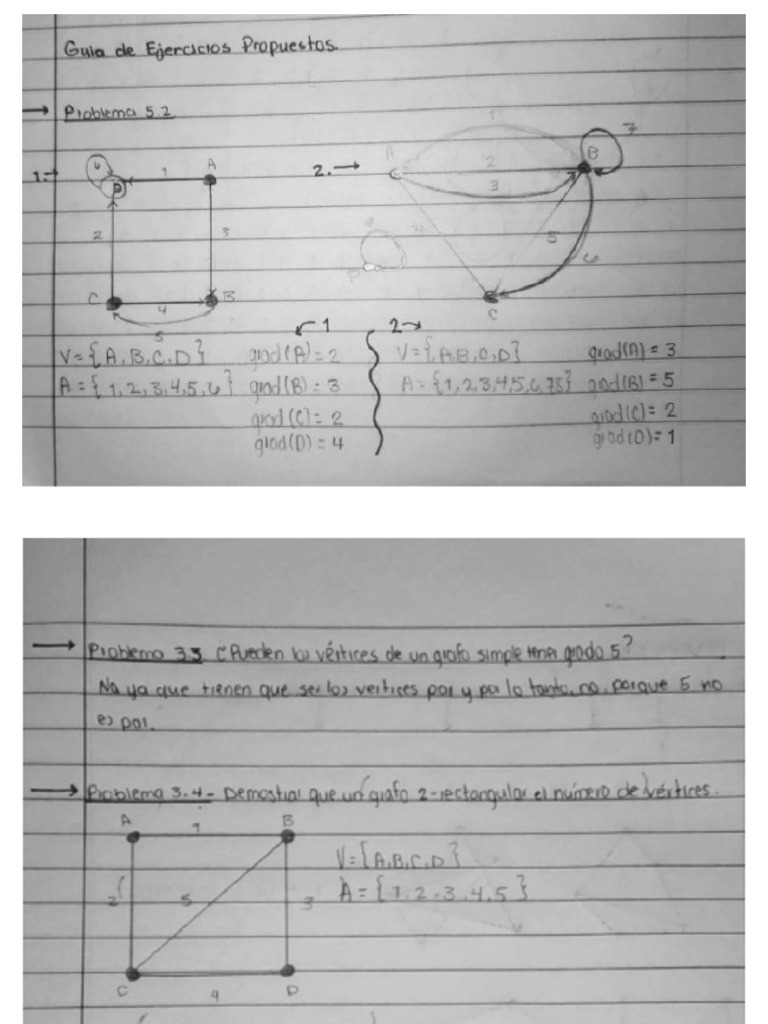 Guia de Ejercicios Propuestos.
→ Problema 5.2
1.→
A
B
C
D
1
2
3
4
5
6
2.→
A
B
C
1
2
3
4
5
6
7
↙ 1
2→
V={A,B,C,D} grad(A)=2
A={1,2,3,4,5,6} grad(B)=3
grad(C)=2
grad(D)=4
V={A,B,C,D} grad(A)=3
A={1,2,3,4,5,6,7,8} grad(B)=5
grad(C)=2
grad(D)=1
→ Problema 3.3 ¿Pueden los vértices de un grafo simple tener grado 5?
No ya que tienen que ser los vertices par y por lo tanto, no, porque 5 no
es par.
→ Problema 3.4- Demostrar que un grafo 2-rectangular el número de vértices.
A
1
B
2
5
3
C
4
D
V={A,B,C,D}
A={1,2,3,4,5}